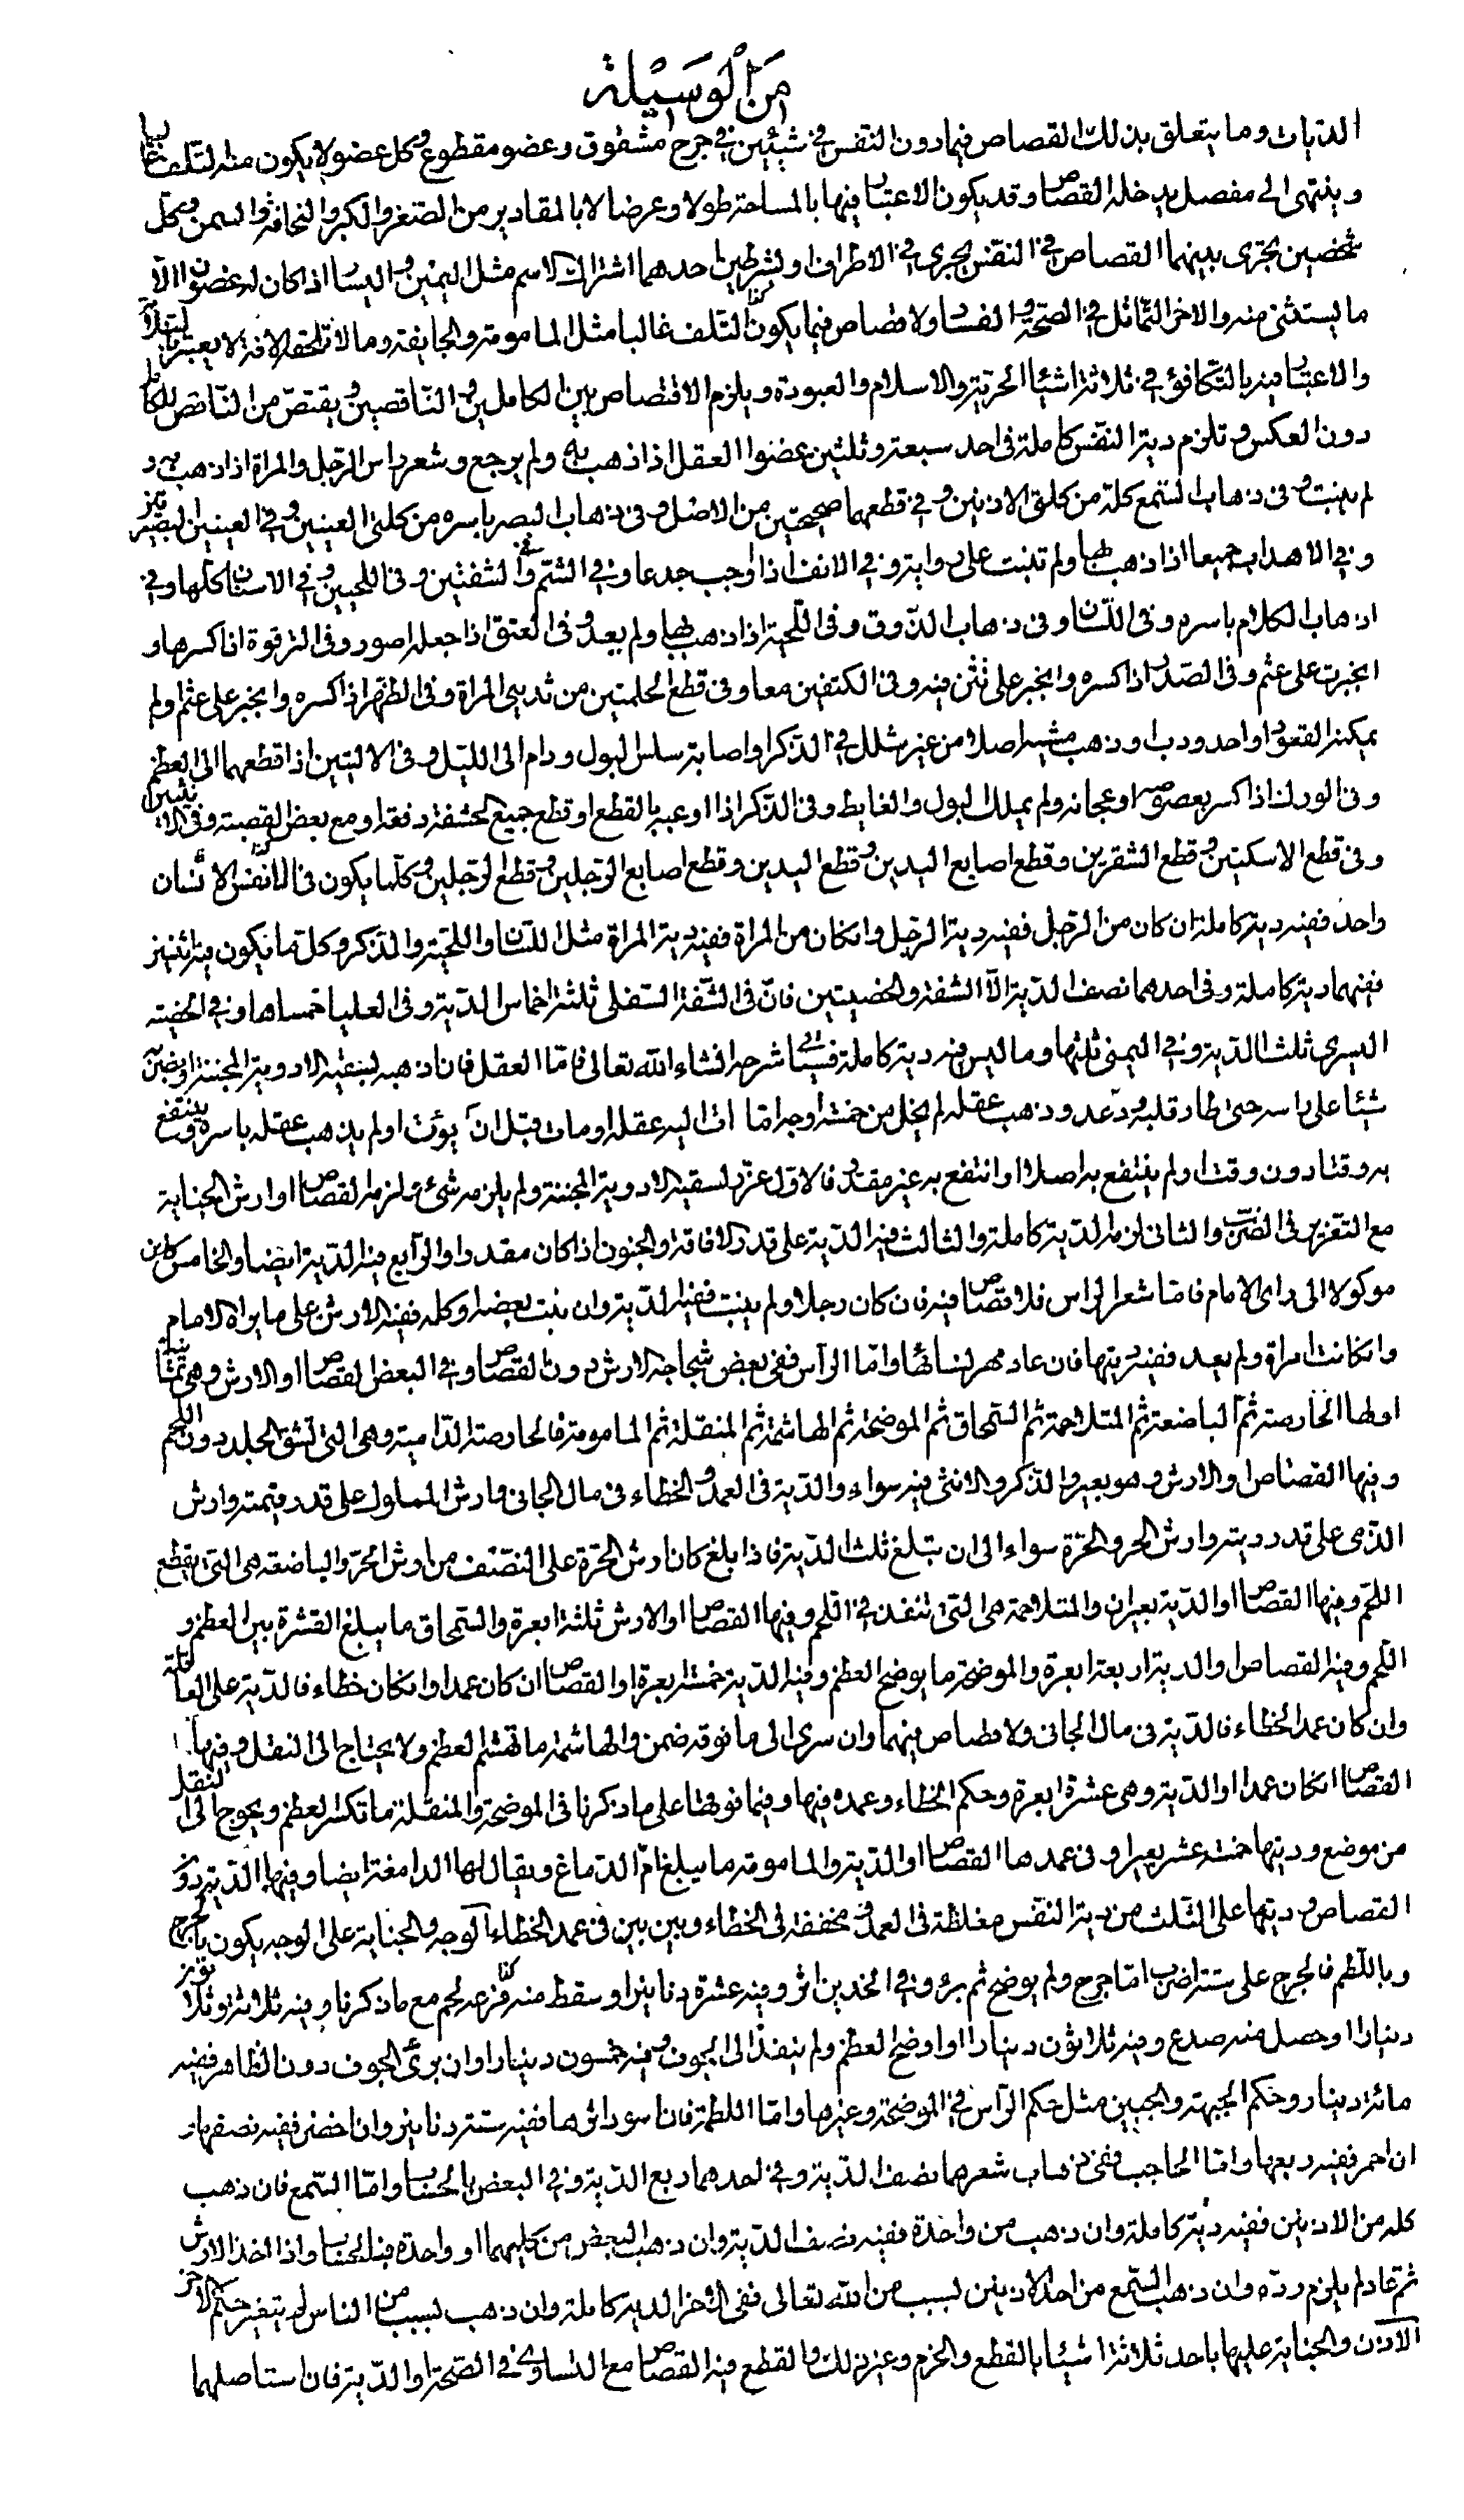 من الوسيلة
الديات وما يتعلق بذلك القصاص فيما دون النفس في شيئين في جرح مشقوق وعضو مقطوع وكل عضو لا يكون منه التلف غالبا
وينتهى الى مفصل يدخله القصاص وقد يكون الاعتبار فيها بالمساحة طولا وعرضا لا بالمقادير من الصغر والكبر والنحافة والسمن وكل
شخصين يجرى بينهما القصاص في النفس يجرى في الاطراف ولشرطين احدهما اشتراك الاسم مثل اليمين واليسار اذا كان له عضوان الا
ما يستثنى منه والاخر التماثل في الصحة والفساد ولا قصاص فيما يكون التلف غالبا مثل المامومة والجايفة وما لا تلحقه الافة لا يعتبر
والاعتبار فيه بالتكافؤ في ثلاثة اشياء الحرية والاسلام والعبودة ويلزم الاقتصاص بين الكاملين والناقصين ويقتص من الناقص للكامل
دون العكس وتلزم دية النفس كاملة في احد سبعة وثلثين عضوا العقل اذا ذهب به ولم يرجع وشعر راس الرجل والمراة اذا ذهب به و
لم ينبت وفى ذهاب السمع كله من كلتى الاذنين وفي قطعهما صحيحتين من الاصل وفى ذهاب البصر باسره من كلتى العينين وفي العينين البصيرتين
وفي الاهداب جميعا اذا ذهب بها ولم تنبت على رواية وفي الانف اذا اوجب جدعا وفي الشم وفي الشفتين وفى اللحيين وفي الاسنان كلها وفي
اذهاب الكلام باسره وفى اللسان وفى ذهاب الذوق وفى اللحية اذا ذهب بها ولم يعد وفى العنق اذا جعله اصور وفى الترقوة اذا كسرها و
انجبرت على عثم وفى الصدر اذا كسره وانجبر على ثنى فيه وفى الكتفين معا وفى قطع الحلمتين من ثديي المراة وفى الظهر اذا كسره وانجبر على عثم ولم
يمكنه القعود او احدودب او ذهب مشيه اصلا من غير شلل في الذكر او اصابته سلس البول ودام الى الليل وفى الاليتين اذا قطعهما الى العظم
وفى الورك اذا كسر بعصوصه او عجانه ولم يملك البول والغايط وفى الذكر اذا اوعب بالقطع او قطع جميع الحشفة دفعة او مع بعض القصبة وفى الانثيين
وفى قطع الاسكتين وقطع الشفرين وقطع اصابع اليدين وقطع اليدين وقطع اصابع الرجلين وقطع الرجلين وكلما يكون فى الانسان
واحد ففيه دية كاملة ان كان من الرجل ففيه دية الرجل وان كان من المراة ففيه دية المراة مثل اللسان واللحية والذكر وكل ما يكون فيه اثنين
ففيهما دية كاملة وفى احدهما نصف الدية الا الشفة والخصيتين فان فى الشفة السفلى ثلثة اخماس الدية وفى العليا خمساها وفي الخصية
اليسرى ثلثا الدية وفي اليمنى ثلثها وما ليس فيه دية كاملة فسياتى شرحه انشاء الله تعالى فاما العقل فان ذهب بسقيه الادوية المجننة او ضربه
شيئا على راسه حتى طار قلبه وذعر وذهب عقله لم يخل من خمسة اوجه اما اتاب اليه عقله او مات قبل ان يؤب او لم يذهب عقله باسره وينتفع
به وقتا دون وقت او لم ينتفع به اصلا او انتفع به غير مقدر فالاول عزر لسقيه الادوية المجننة ولم يلزمه شىء ولزمه القصاص او ارش الجناية
مع التعزير فى الضرب والثانى لزمه الدية كاملة والثالث فيه الدية على قدر الافاقة والجنون اذا كان مقدرا والرابع فيه الدية ايضا والخامس كان
موكولا الى راى الامام فاما شعر الراس فلا قصاص فيه فان كان رجلا ولم ينبت ففيه الدية وان نبت بعضه او كله ففيه الارش على ما يراه الامام
وان كانت امراة ولم يعد ففيه ديتها فان عاد مهر نسائها واما الراس ففى بعض شجاجه الارش دون القصاص وفي البعض القصاص او الارش وهى ثمانية
اولها الخارصة ثم الباضعة ثم المتلاحمة ثم السمحاق ثم الموضحة ثم الهاشمة ثم المنقلة ثم المامومة فالخارصة الدامية وهى التى تشق الجلد دون اللحم
وفيها القصاص او الارش وهو بعير والذكر والانثى فيه سواء والدية فى العمد والخطاء فى مال الجانى وارش المملوك على قدر قيمته وارش
الذمى على قدر ديته وارش الحر والحرة سواء الى ان تبلغ ثلث الدية فاذا بلغ كان ارش الحرة على النصف من ارش الحر والباضعة هى التى تقطع
اللحم وفيها القصاص او الدية بعيران والمتلاحمة هى التى تنفذ في اللحم وفيها القصاص او الارش ثلثة ابعرة والسمحاق ما يبلغ القشرة بين العظم و
اللحم وفيه القصاص او الدية اربعة ابعرة والموضحة ما يوضح العظم وفيه الدية خمسة ابعرة او القصاص ان كان عمدا وان كان خطاء فالدية على العاقلة
وان كان عمد الخطاء فالدية فى مال الجانى ولا قصاص فيهما وان سرى الى ما فوقه ضمن والهاشمة ما تهشم العظم ولا يحتاج الى النقل وفيها
القصاص ان كان عمدا او الدية وهى عشرة ابعرة وحكم الخطاء وعمده فيها وفيما فوقها على ما ذكرنا فى الموضحة والمنقلة ما تكسر العظم ويحوج الى النقل
من موضع وديتها خمسة عشر بعيرا وفى عمدها القصاص او الدية والمامومة ما يبلغ ام الدماغ ويقال لها الدامغة ايضا وفيها الدية دون
القصاص وديتها على الثلث من دية النفس مغلظة فى العمد ومخففة فى الخطاء وبين بين فى عمد الخطاء الوجه والجناية على الوجه يكون بالجرح
وباللطم فالجرح على ستة اضرب اما جرح ولم يوضح ثم برؤ وفي الخدين اثر وفيه عشرة دنانير او سقط منه قزعة لحم مع ما ذكرنا وفيه ثلاثة وثلاثون
دينارا او حصل منه صدع وفيه ثلاثون دينارا او اوضح العظم ولم ينفذ الى الجوف وفيه خمسون دينارا وان برئ الجوف دون الظاهر ففيه
مائة دينار وحكم الجبهة والجبين مثل حكم الراس في الموضحة وغيرها واما اللطمة فان اسود اثرها ففيه ستة دنانير وان اخضر ففيه نصفها و
ان احمر ففيه ربعها واما الحاجب ففى ذهاب شعرهما نصف الدية وفي احدهما ربع الدية وفي البعض بالحساب واما السمع فان ذهب
كله من الاذنين ففيه دية كاملة وان ذهب من واحدة ففيه نصف الدية وان ذهب البعض من كليهما او واحدة فبالحساب واذا اخذ الارش
ثم عاد لم يلزم رده وان ذهب السمع من احد الاذنين بسبب من الله تعالى ففى الاخر الدية كاملة وان ذهب بسبب من الناس لم يتغير حكم الاخر
الاذن والجناية عليها باحد ثلاثة اشياء بالقطع والخرم وغير ذلك والقطع فيه القصاص مع التساوى في الصحة او الدية فان استاصلهما